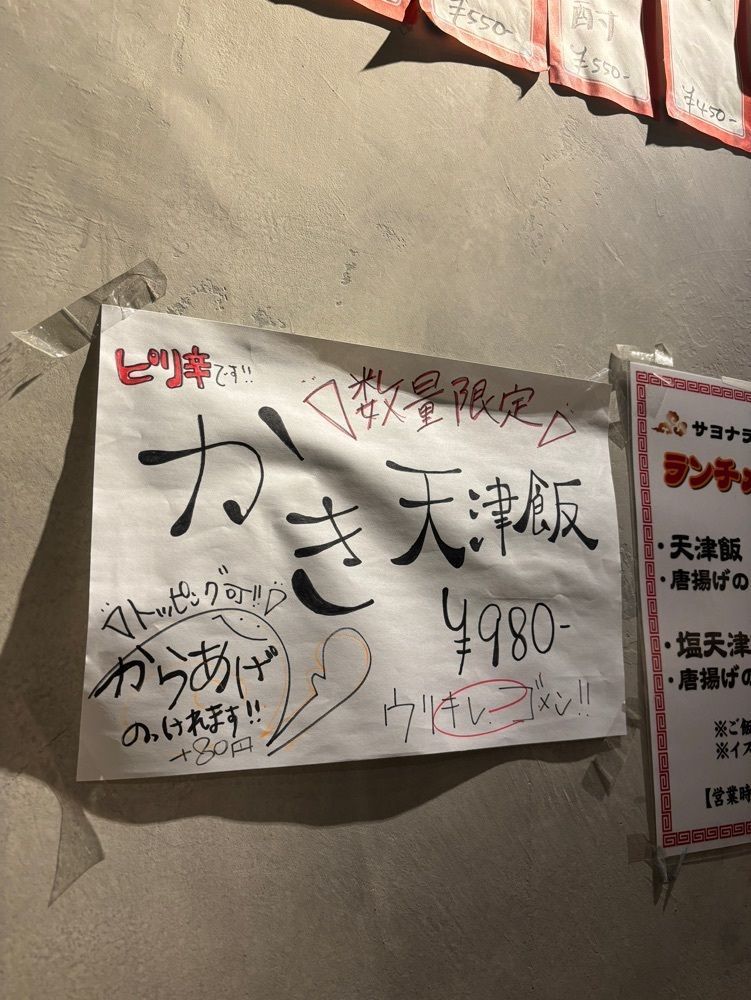 ¥550-
酎
¥550-
¥450-
ピリ辛です!!
数量限定
かき天津飯
¥980-
トッピング可!!
からあげ
のっけれます!!
+80円
ウリキレゴメン!!
サヨナラ
ランチメ
・天津飯
・唐揚げの
・塩天津
・唐揚げの
※ご飯
※イス
【営業時